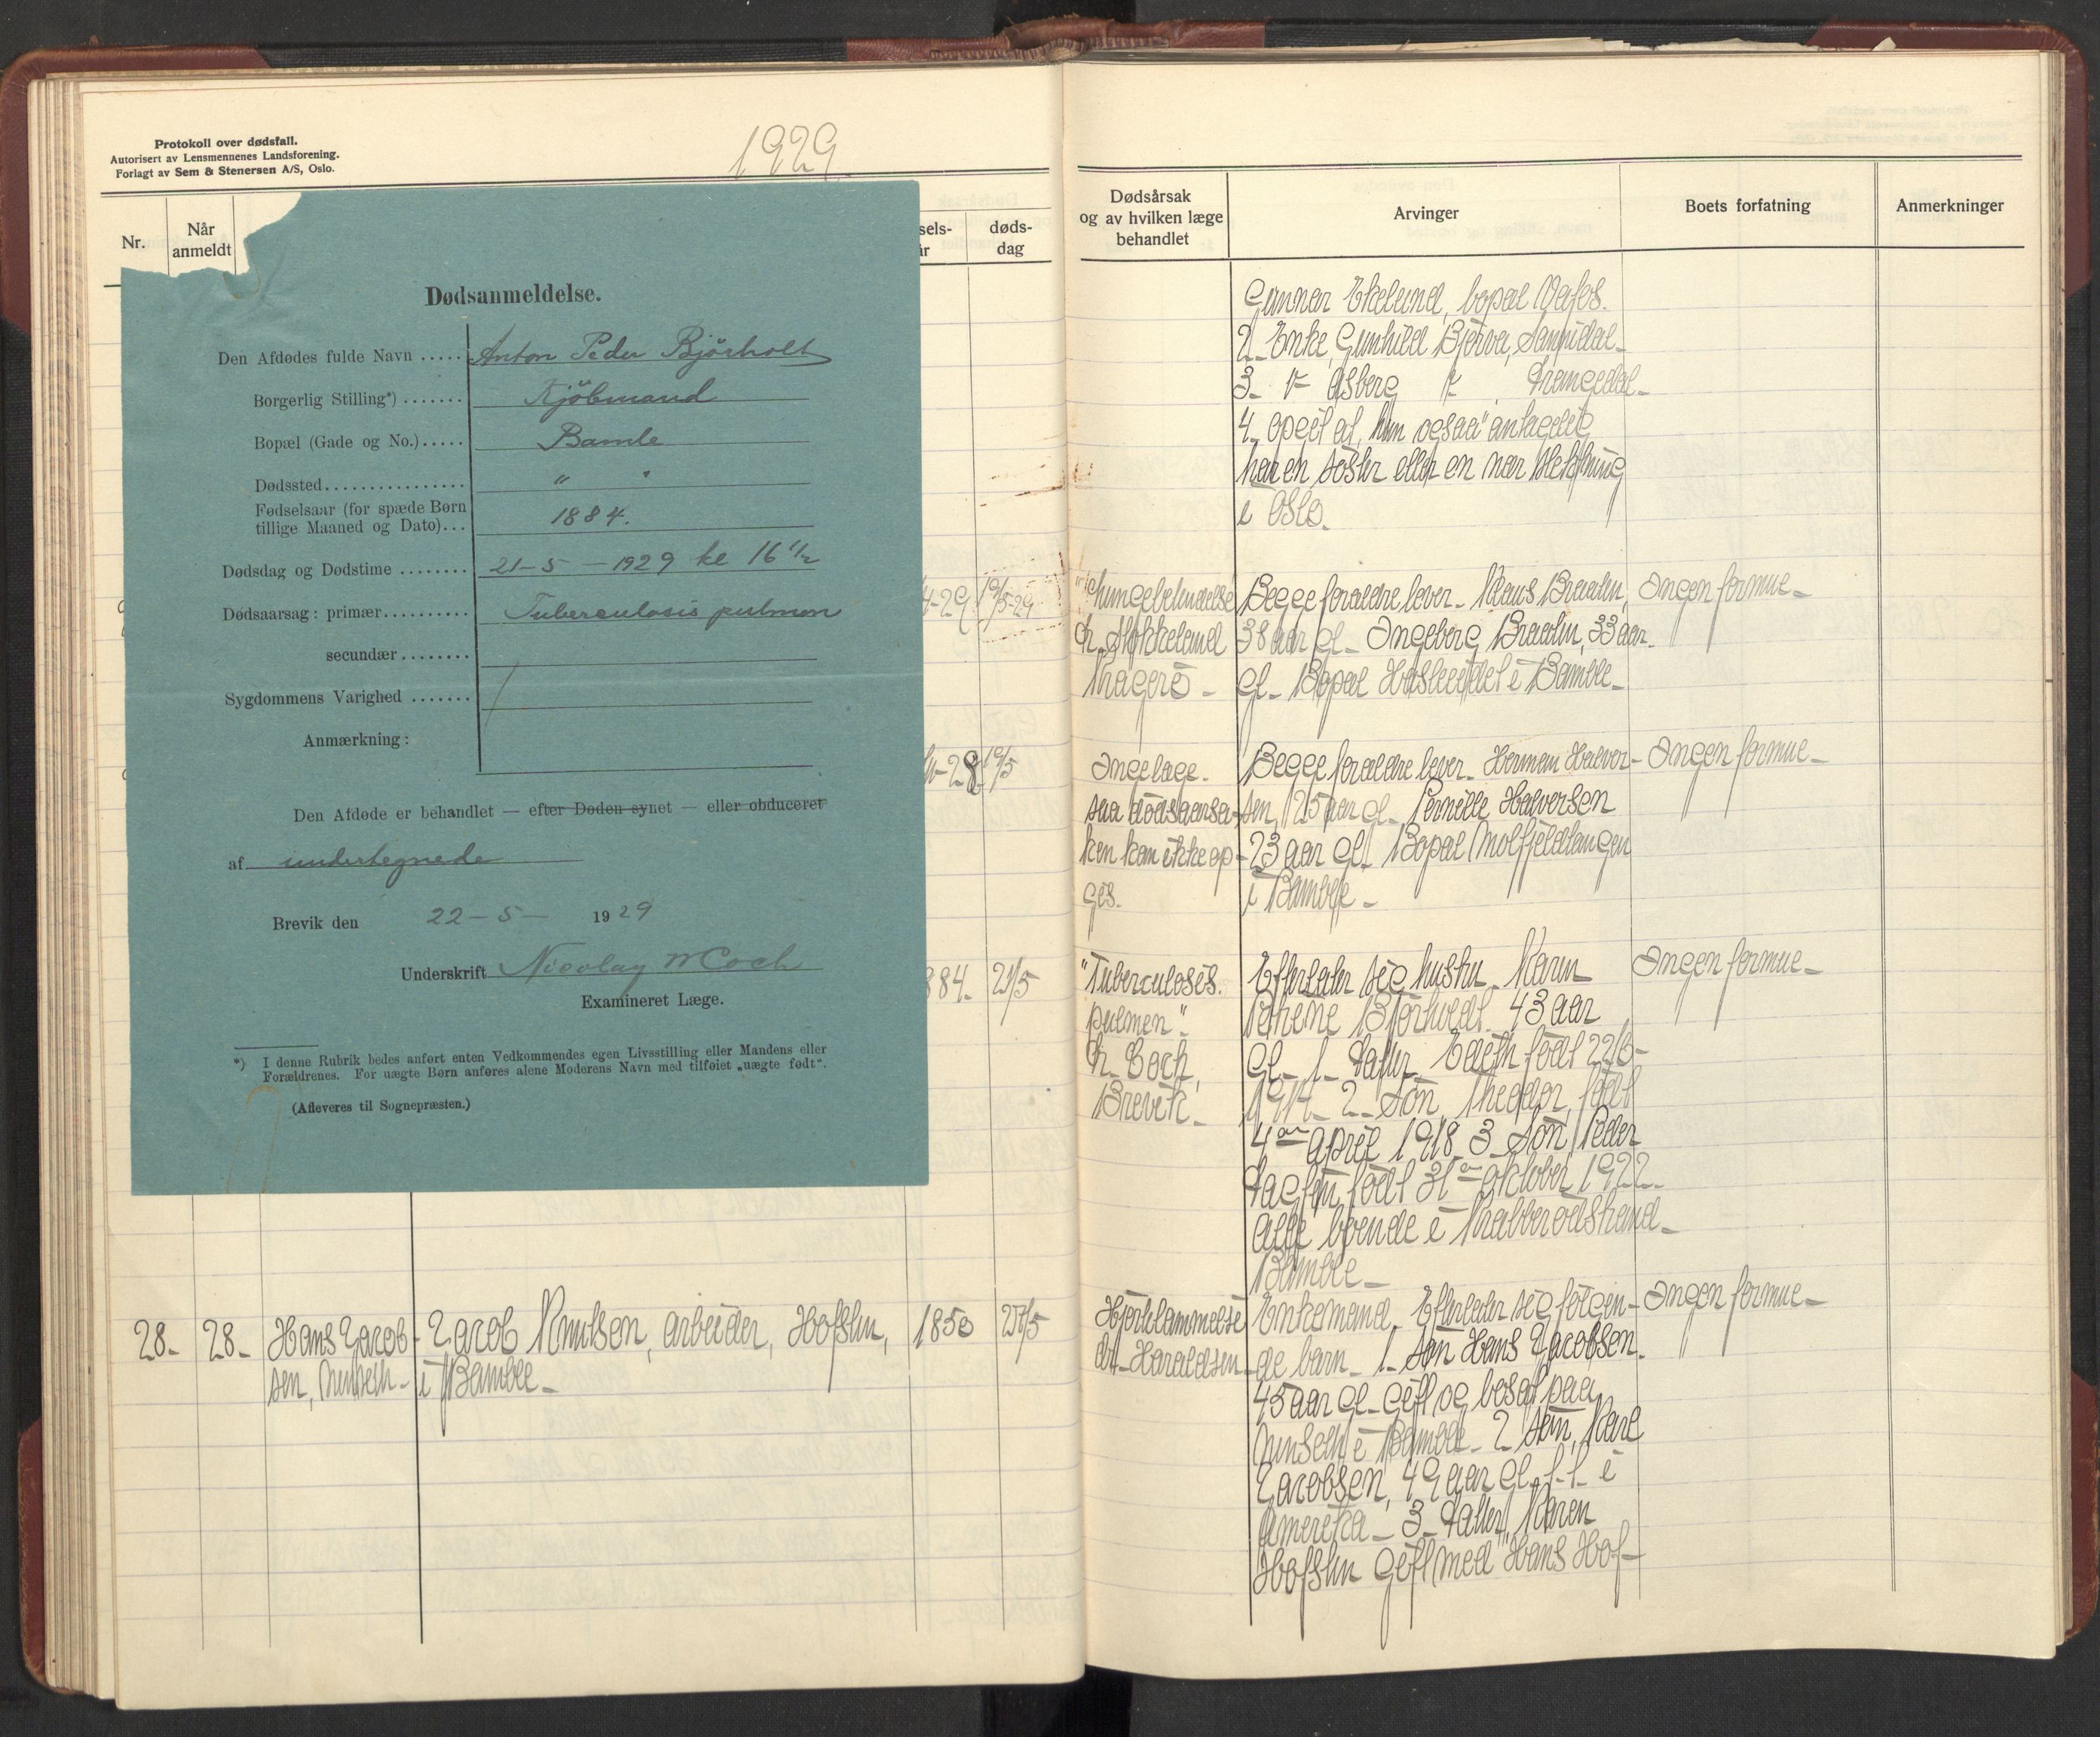 Protokoll over dødsfall.
Autorisert av Lensmennenes Landsforening.
Forlagt av Sem & Stenersen A/S, Oslo.
1929
Nr.
Når
anmeldt
sels-
år
døds-
dag
Dødsanmeldelse.
Den Afdødes fulde Navn ..... Anton Peder Bjørholt
Borgerlig Stilling*) ....... Kjöbmand
Bopæl (Gade og No.)..... Bamle
Dødssted................ " "
Fødselsaar (for spæde Børn
tillige Maaned og Dato)... 1884.
Dødsdag og Dødstime ........ 21-5-1929 kl 16 1/2
Dødsaarsag: primær.......... Tuberculosis pulmon
secundær ........
Sygdommens Varighed .......
Anmærkning:
Den Afdøde er behandlet — efter Døden synet — eller obduceret
af undertegnede
Brevik den 22-5- 1929
Underskrift Nicolay W Coch
Examineret Læge.
*) I denne Rubrik bedes anført enten Vedkommendes egen Livsstilling eller Mandens eller
Forældrenes. For uægte Børn anføres alene Moderens Navn med tilføiet „uægte født“.
(Afleveres til Sognepræsten.)
4-29 19/5-29
-28 19/5
884. 21/5
28. 28. Hans Jacob- Jacob Knutsen, arbeider, Hofslin, 1850 27/5
sen, i Bamble.
Dødsårsak
og av hvilken læge
behandlet
Arvinger
Boets forfatning
Anmerkninger
Gunnar Ekelund, bopæl Vafos.
2. Enke, Gunhild Bjerva, Sannidal.
3. " Asberg " , Drangedal.
4. opgit at hun ogsaa antagelig
har en søster eller en nær slektning
i Oslo.
"Lungebetændelse Begge forældre lever. Klaus Braaten, Ingen formue.
Dr. Stokkeland 38 aar gl. Ingeborg Braaten, 33 aar
Kragerø. gl. Bopæl Hasleeidet i Bamble.
Ingen læge. Begge forældre lever. Herman Halvor- Ingen formue.
saa dødsaarsa- sen, 25 aar gl. Pernille Halvorsen
ken kan ikke op- 23 aar gl. Bopæl Molfjeldtangen
ges. i Bamble.
"Tuberculosis. Efterlater sig hustru, Karen Ingen formue.
pulmon". Petrine Bjørholt 43 aar
Dr. Coch, gl. 1. Datter Edith født 22/5-
Brevik. 1914. 2. Søn, Theodor, født
4de april 1918 3. Søn Peder
Dagfin født 31te oktober 1922.
Alle boende i Krabberødstrand.
Bamble.
Hjertelammelse Enkemand. Efterlater sig følgen- Ingen formue.
dr. Haraldsen. de barn. 1. Søn Hans Jacobsen.
45 aar gl. gift og bosat paa
i Bamble. 2 søn, Karl
Jacobsen, 49 aar gl. f.t. i
Amerika. 3. Datter, Karen
Hofslin gift med Hans Hof-